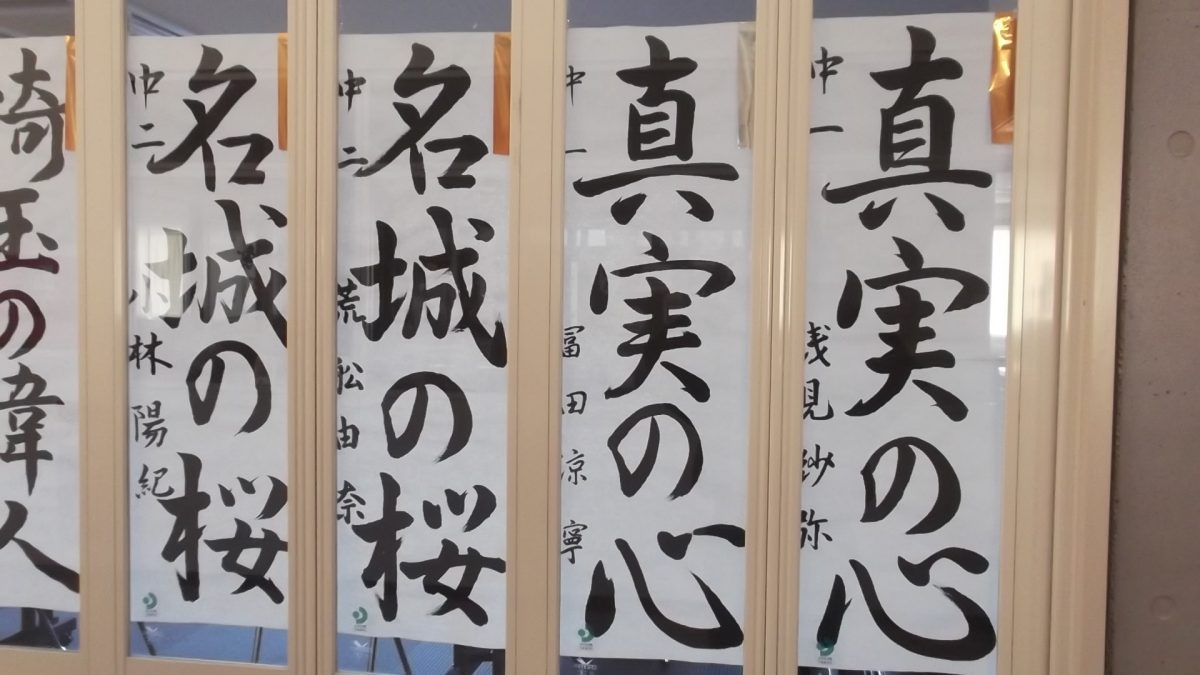 真実の心
中一
浅見紗弥
真実の心
中一
冨田凉寧
名城の桜
中二
荒舩由奈
名城の桜
中二
小林陽紀
埼玉の偉人